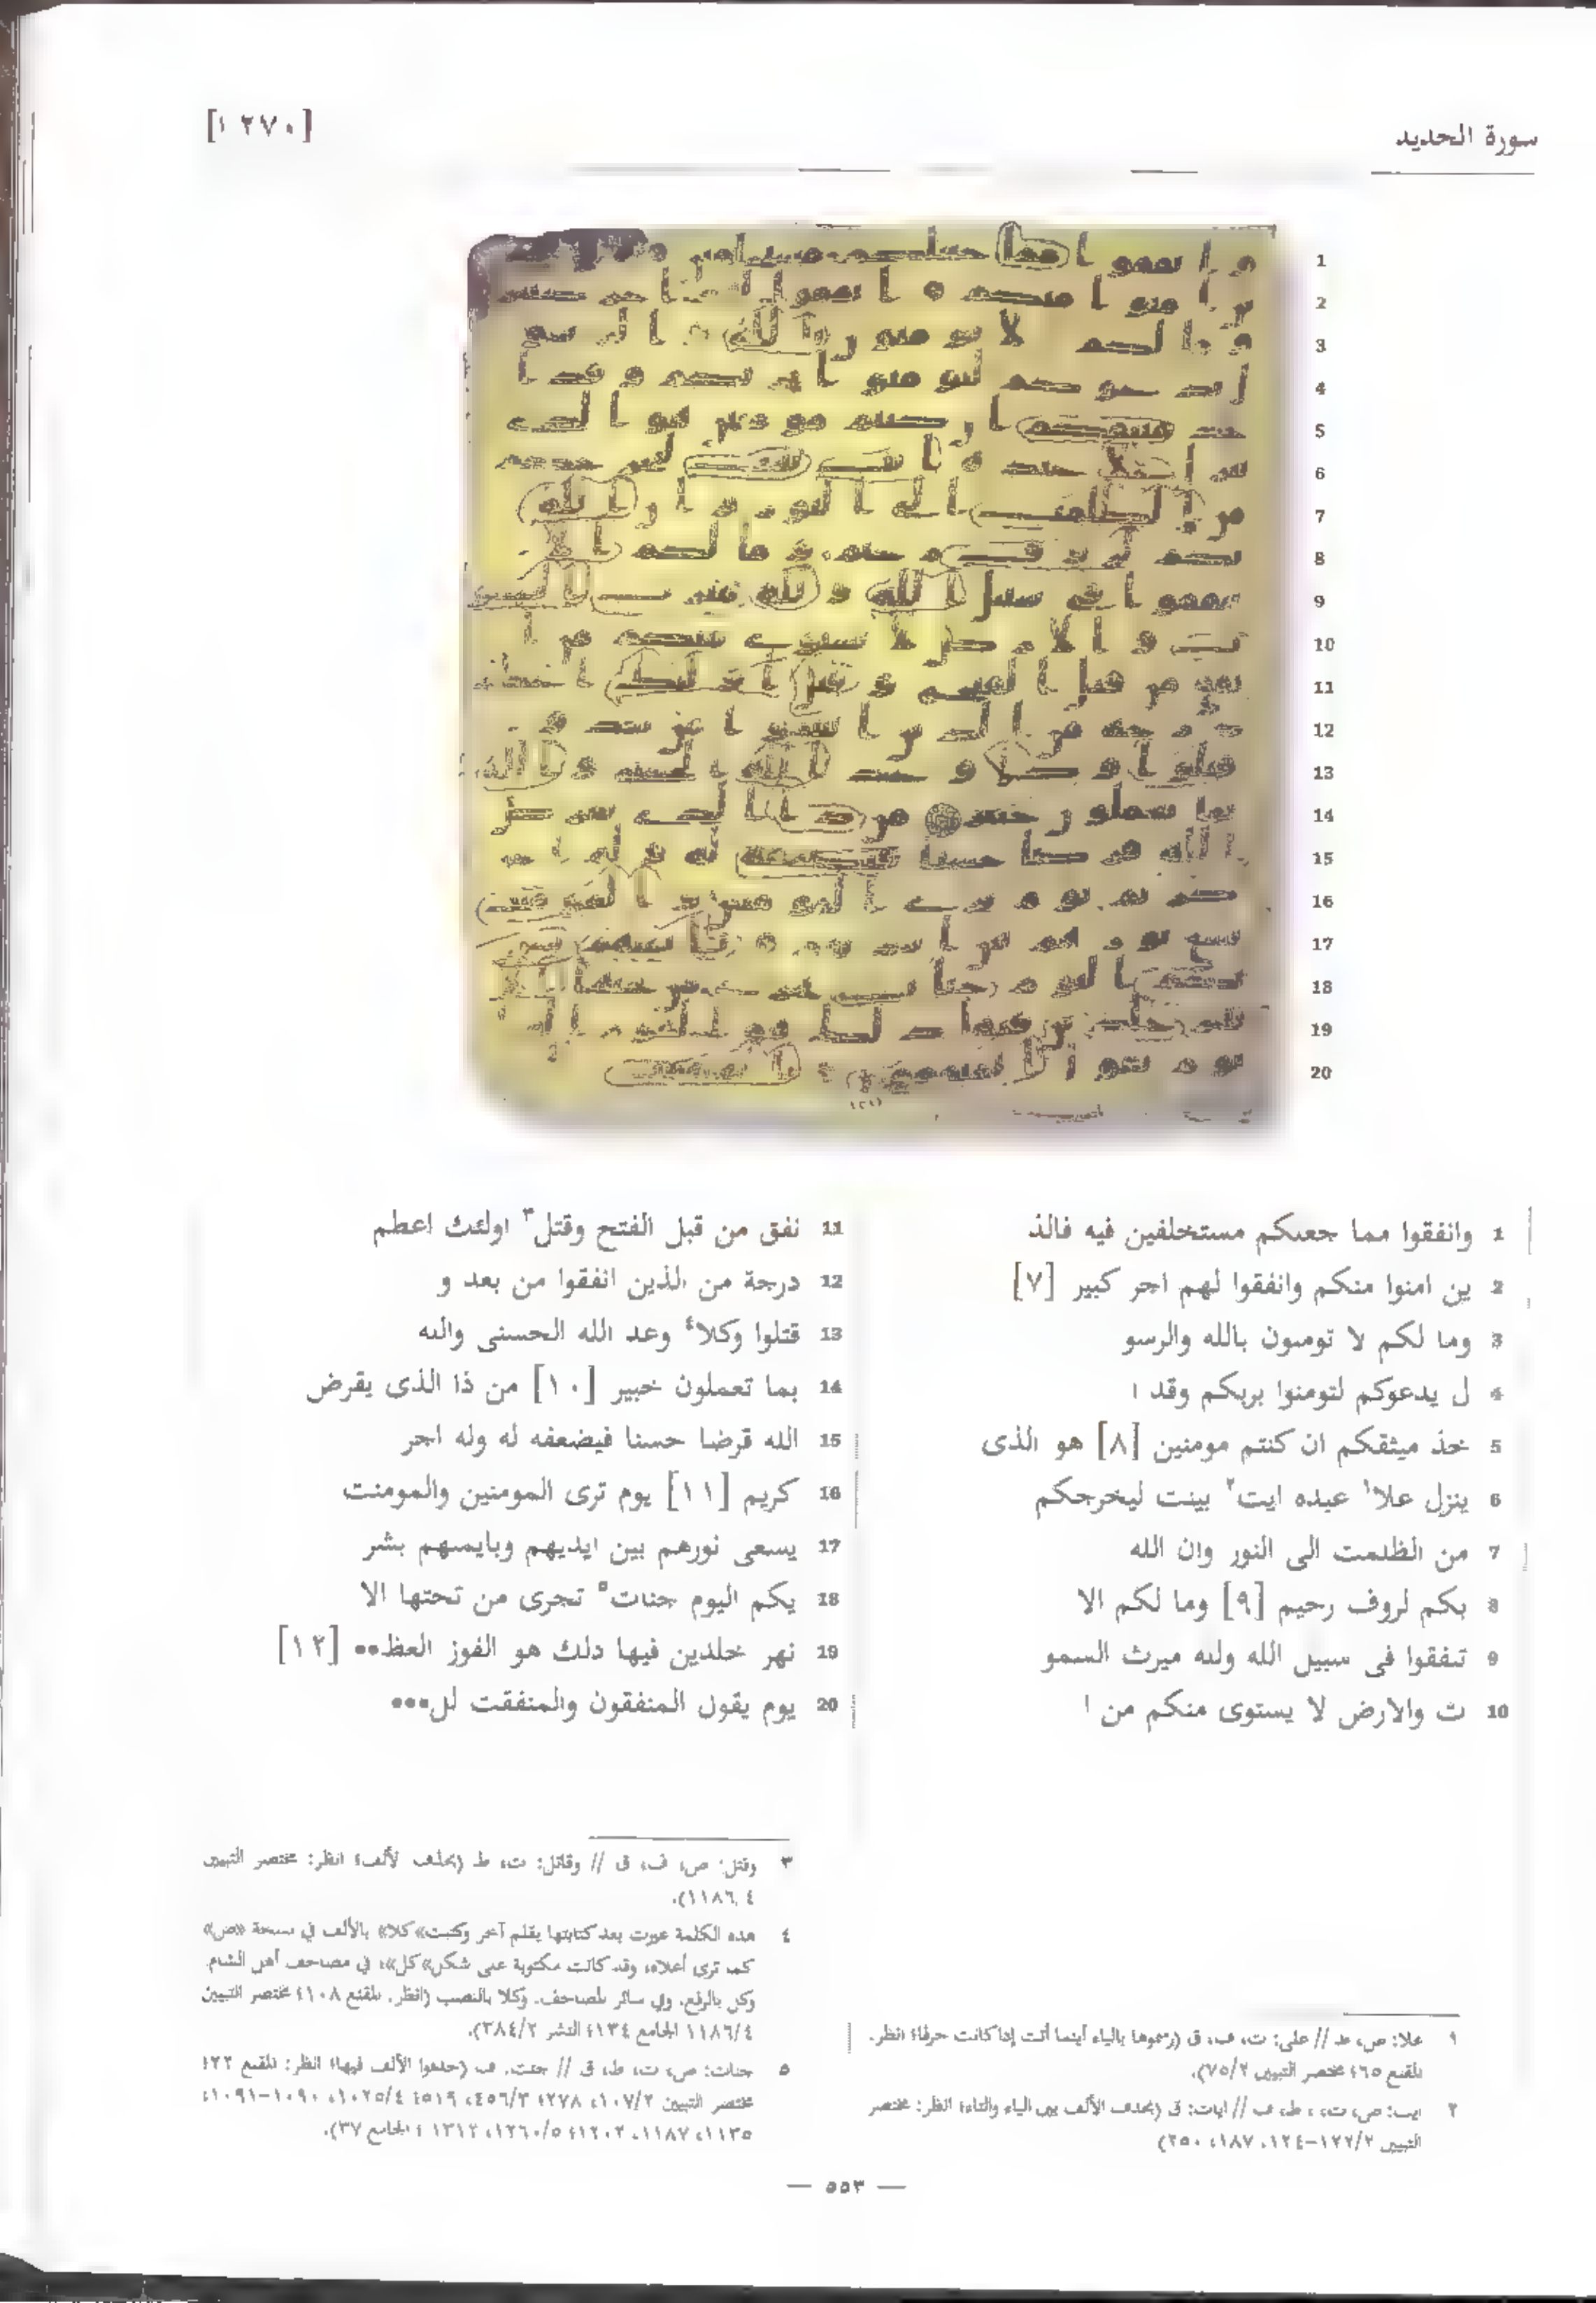 [١٢٧٠]
سورة الحديد
1 وانفقوا مما جعلكم مستخلفين فيه فالذ
2 ين امنوا منكم وانفقوا لهم اجر كبير [٧]
3 وما لكم لا تومنون بالله والرسو
4 ل يدعوكم لتومنوا بربكم وقد ا
5 خذ ميثقكم ان كنتم مومنين [٨] هو الذى
6 ينزل علا١ عبده ايت٢ بينت ليخرجكم
7 من الظلمت الى النور وان الله
8 بكم لروف رحيم [٩] وما لكم الا
9 تنفقوا فى سبيل الله ولله ميرث السمو
10 ت والارض لا يستوى منكم من ا
11 نفق من قبل الفتح وقتل٣ اولئك اعظم
12 درجة من الذين انفقوا من بعد و
13 قتلوا وكلا٤ وعد الله الحسنى والله
14 بما تعملون خبير [١٠] من ذا الذى يقرض
15 الله قرضا حسنا فيضعفه له وله اجر
16 كريم [١١] يوم ترى المومنين والمومنت
17 يسعى نورهم بين ايديهم وبايمنهم بشر
18 يكم اليوم جنات٥ تجرى من تحتها الا
19 نهر خلدين فيها ذلك هو الفوز العظ●● [١٢]
20 يوم يقول المنفقون والمنفقت لل●●●
١ علا: ص، ط // على: ت، ف، ق (رسموها بالياء أينما أتت إذا كانت حرفا؛ انظر:
المقنع ٦٥؛ مختصر التبيين ٧٥/٢).
٢ ايت: ص، ت، ط، ف // ايات: ق (بحذف الألف بين الياء والتاء؛ انظر: مختصر
التبيين ١٢٢/٢-١٢٤، ١٨٧، ٢٥٠)
٣ وقتل: ص، ف، ق // وقاتل: ت، ط (بحذف الألف؛ انظر: مختصر التبيين
١١٨٦/٤).
٤ هذه الكلمة غيرت بعد كتابتها بقلم آخر وكتبت «كلا» بالألف في نسخة «ص»
كما ترى أعلاه، وقد كانت مكتوبة على شكل «كل»؛ في مصاحف أهل الشام
وكل بالرفع، وفي سائر المصاحف، وكلا بالنصب (انظر: المقنع ١٠٨؛ مختصر التبيين
١١٨٦/٤ الجامع ١٣٤؛ النشر ٣٨٤/٢).
٥ جنات: ص، ت، ط، ق // جنت: ف (حذفوا الألف فيها؛ انظر: المقنع ٢٢؛
مختصر التبيين ١٠٧/٢، ٢٧٨؛ ٤٥٦/٣، ٥١٩؛ ١٠٢٥/٤، ١٠٩٠-١٠٩١،
١١٣٥، ١١٨٧، ١٢٠٢؛ ١٢٦٠/٥، ١٣١٢؛ الجامع ٣٧).
— ٥٥٣ —